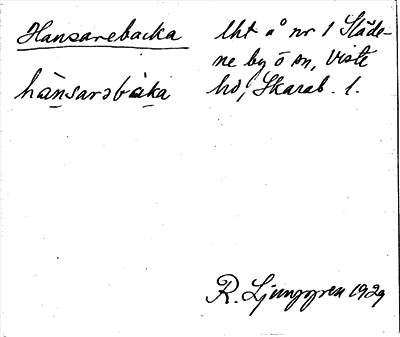 Hansarebacka
hànsarəbàka
lht å nr 1 Släde-
ne by o sn, Viste
hd, Skarab. l.
R. Ljunggren 1929